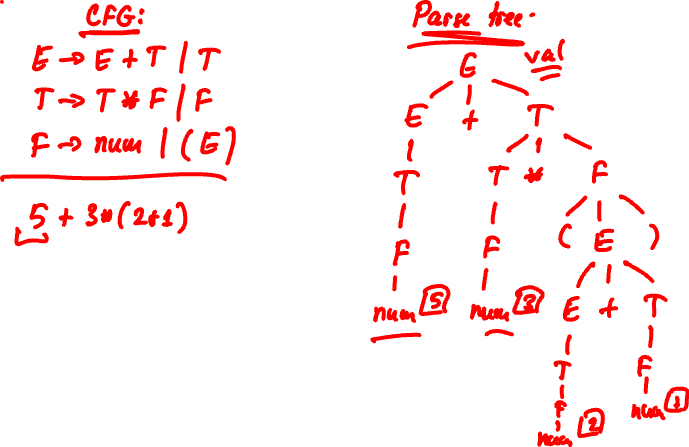 CFG:
E → E + T | T
T → T * F | F
F → num | (E)
5 + 3*(2+1)
Parse tree.
G val
E + T
T T * F
F F ( E )
num 5 num 3 E + T
T F
F num 1
num 2